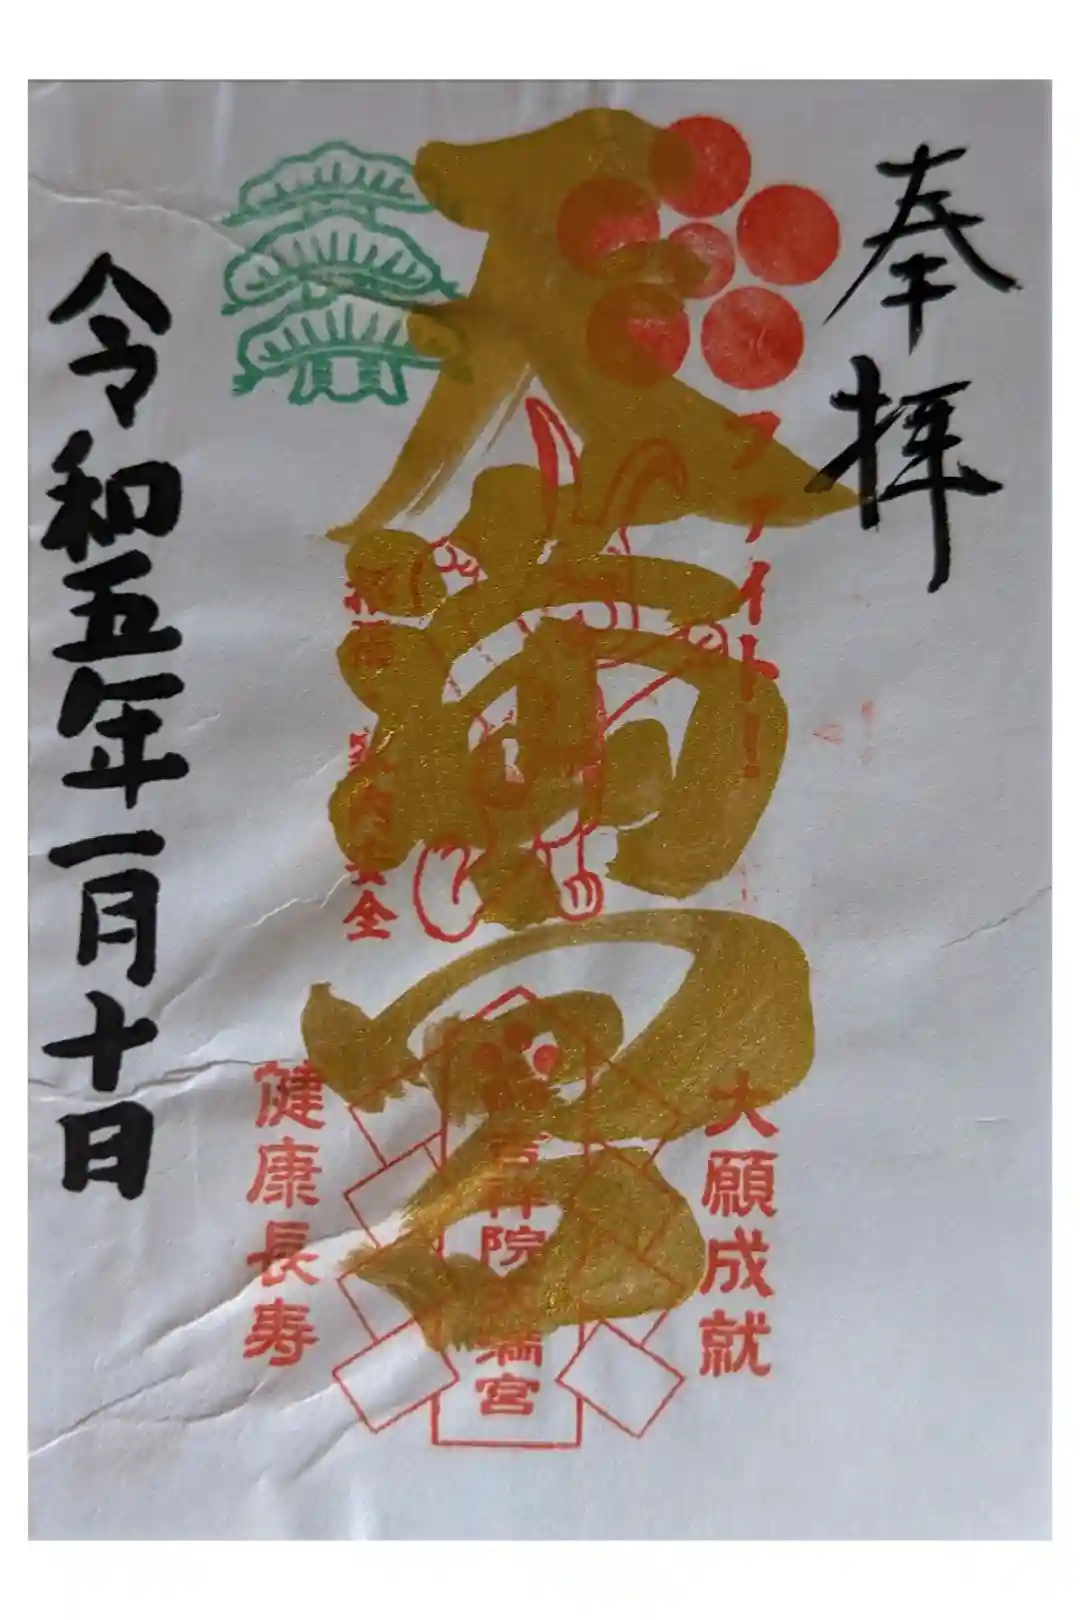 奉拝
ファイト!
大願成就
天満宮
吉祥院天満宮
家内安全
健康長寿
令和五年一月十日